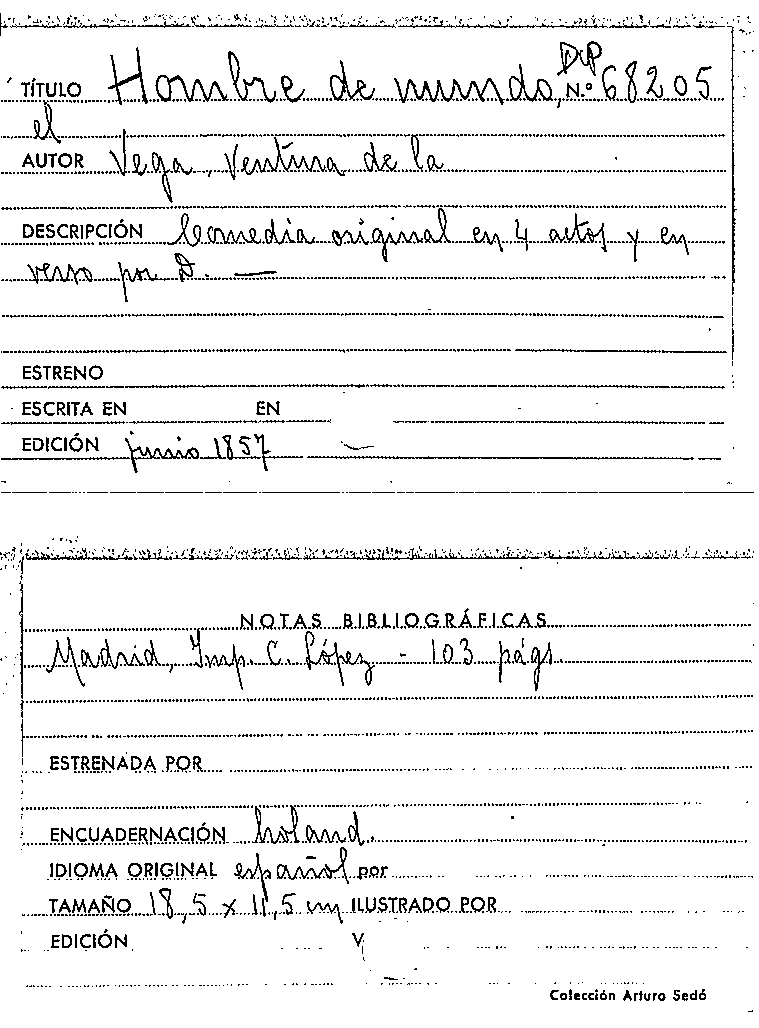 DUP
TÍTULO Hombre de mundo, N.º 68205
el
AUTOR Vega, Ventura de la
DESCRIPCIÓN Comedia original en 4 actos y en
verso por D. —
ESTRENO
ESCRITA EN EN
EDICIÓN junio 1857 —
NOTAS BIBLIOGRÁFICAS
Madrid, Imp. C. López - 103 págs.
ESTRENADA POR
ENCUADERNACIÓN holand.
IDIOMA ORIGINAL español por
TAMAÑO 18,5 x 11,5 cm ILUSTRADO POR
EDICIÓN V
Colección Arturo Sedó